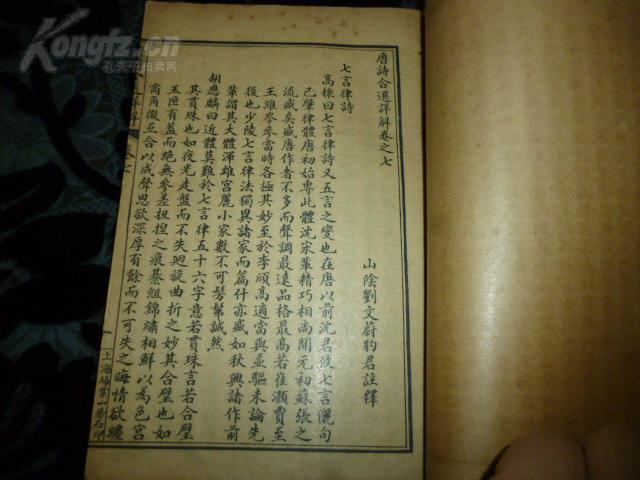 唐詩合選詳解卷之七
山陰劉文蔚豹君註釋
七言律詩
高棅曰七言律詩又五言之變也在唐以前沈君攸七言儷句
已肇律體唐初始專此體沈宋輩精巧相尚開元初蘇張之
流盛矣盛唐作者不多而聲調最遠品格最高若崔顥賈至
王維岑參當時各極其妙至於李頎高適當與並驅未論先
後也少陵七言律法獨異諸家而篇什亦盛如秋興諸作前
輩謂其大體渾雄富麗小家數不可髣髴誠然
胡應麟曰近體莫難於七言律五十六字意若貫珠言若合璧
其貫珠也如夜光走盤而不失迴旋曲折之妙其合璧也如
玉匣有蓋而絕無參差扭捏之痕綦組錦繡相鮮以為色宮
商角徵互合以成聲思欲深厚有餘而不可失之晦情欲纏
卷七
一
上海埽葉山房石印
Kongfz.com
孔夫子拍卖网